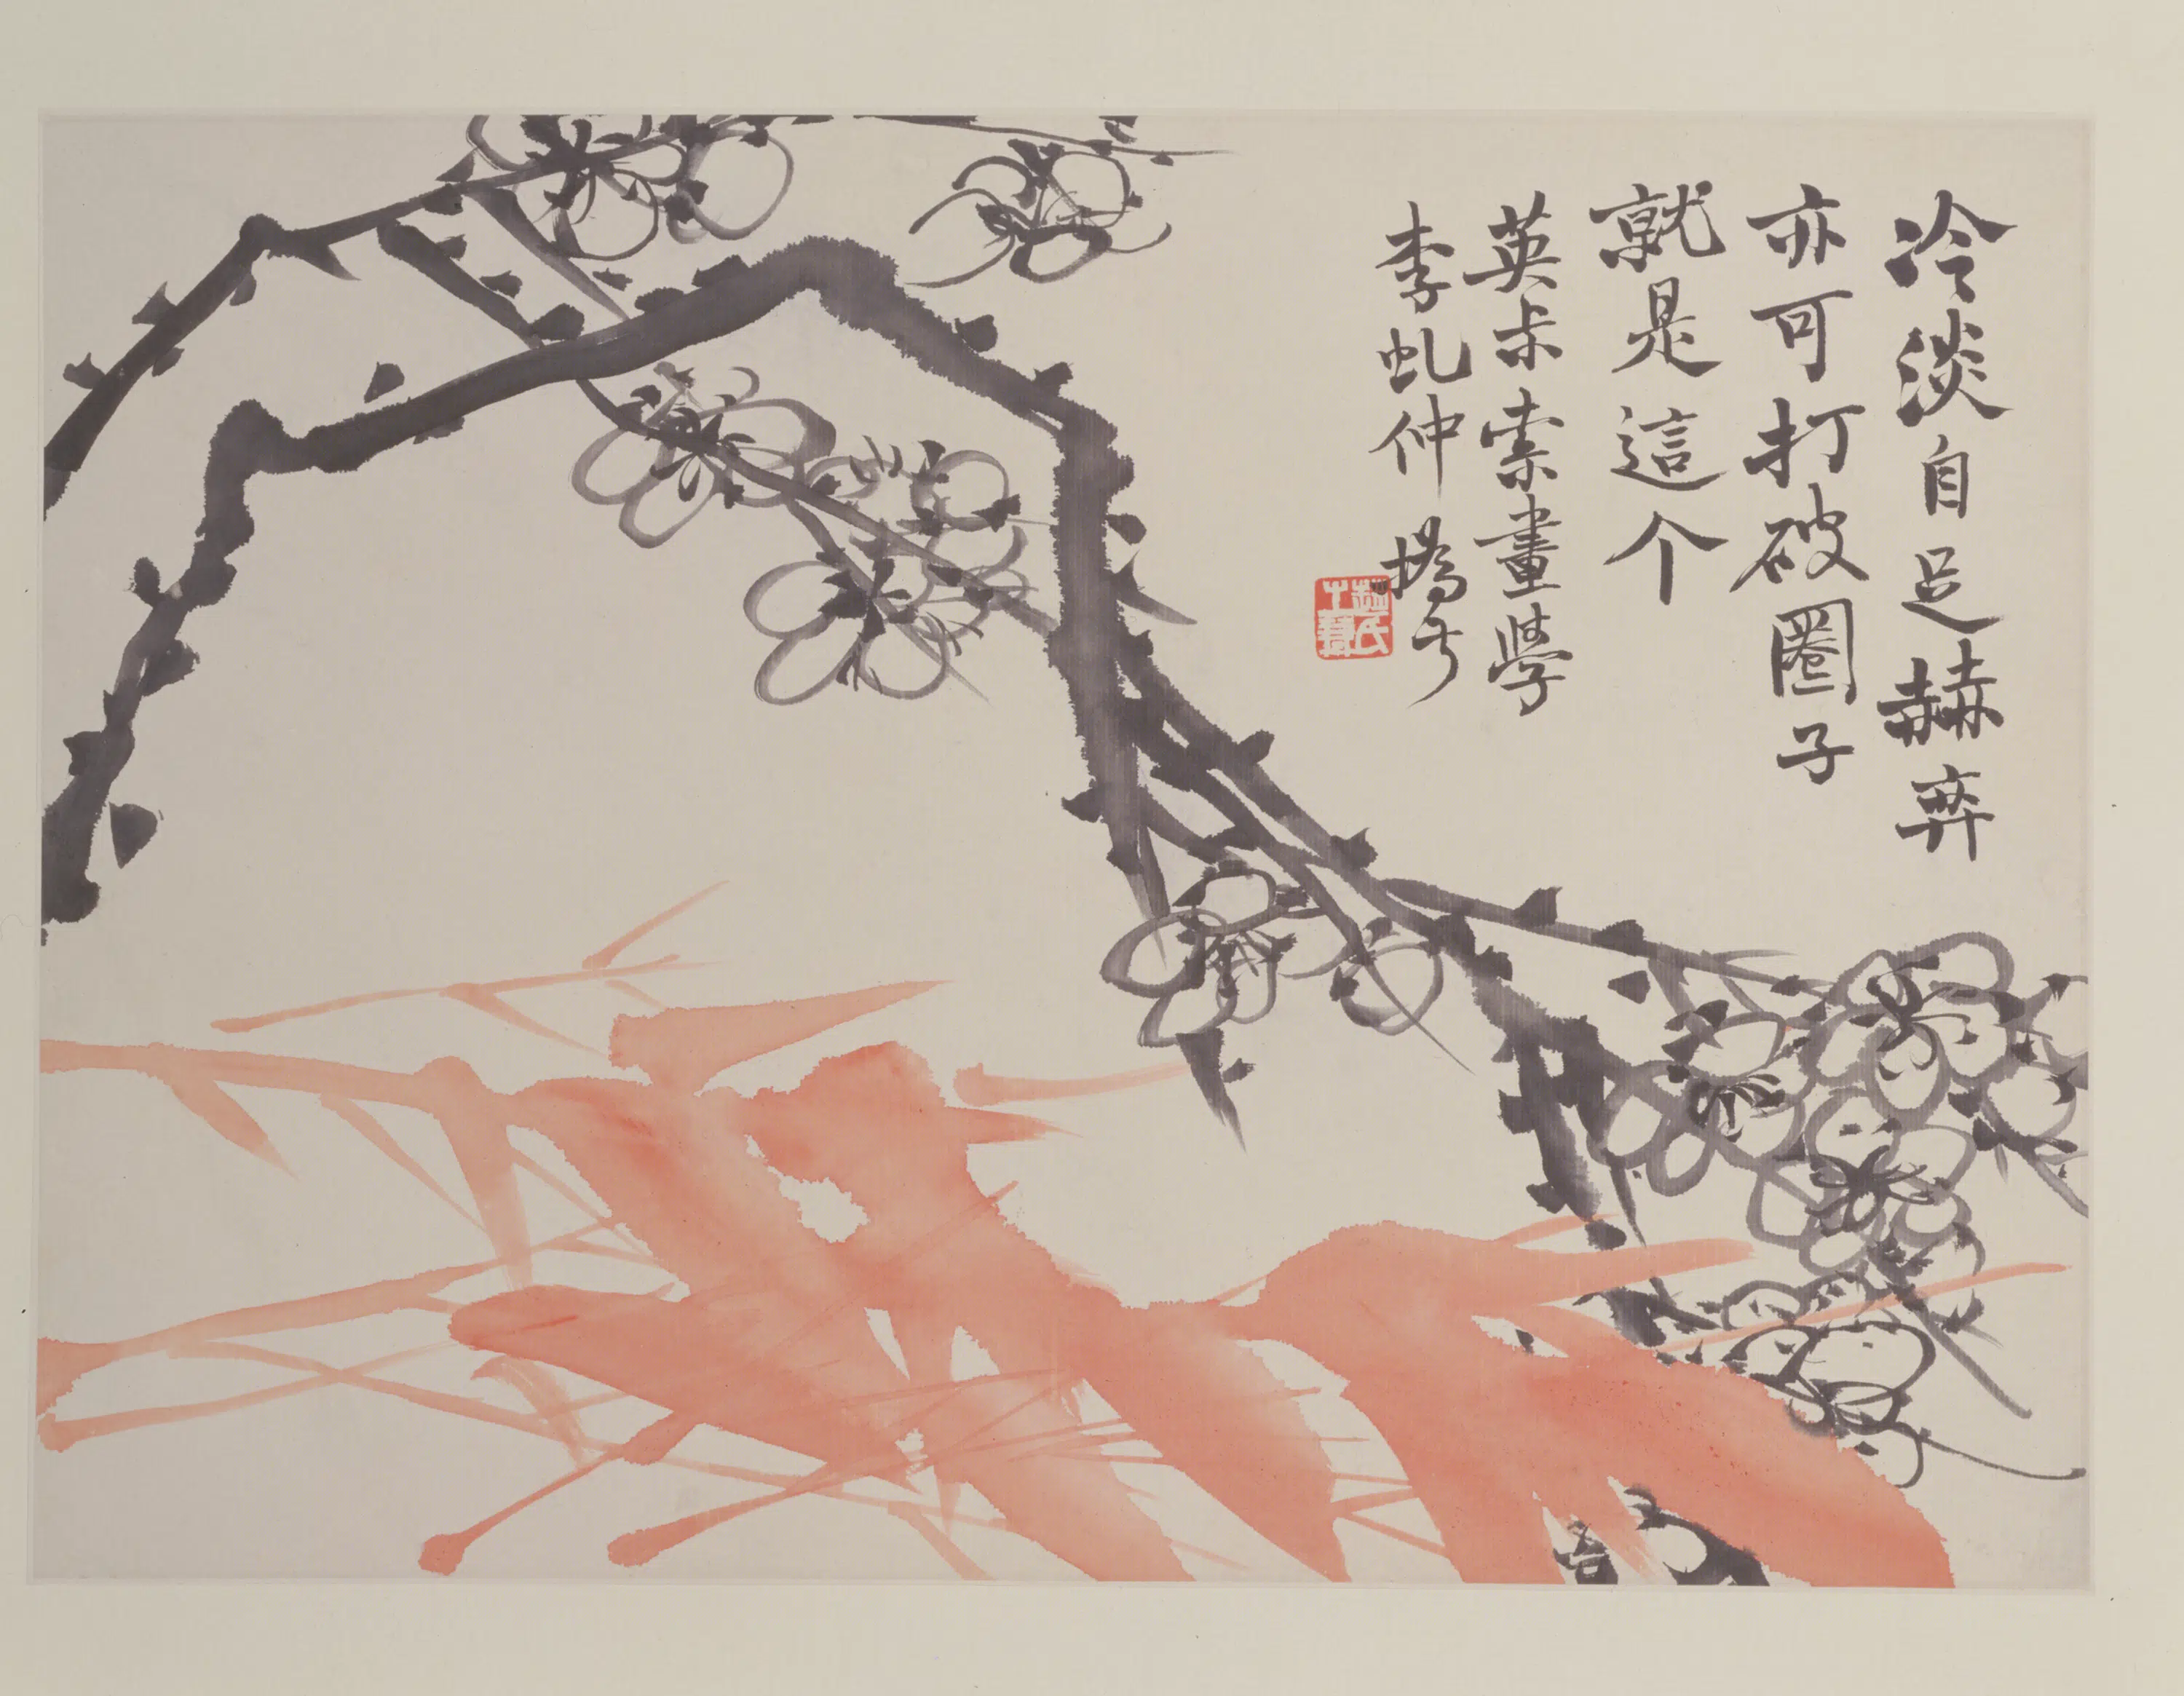 冷淡自足赫弈
亦可打破圈子
就是這个
英尗索畫學
李虬仲 撝尗